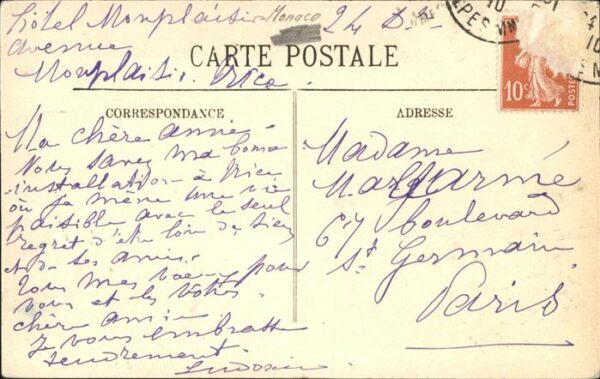 Hôtel Monplaisir Monaco 24 D
Avenue
Monplaisir. Nice.
CARTE POSTALE
CORRESPONDANCE
Ma chère amie
Vous savez ma bonne
installation à Nice
où je mène une vie
paisible avec le seul
regret d'être loin de
ses amis.
Tous mes vœux pour
vous et les vôtres
chère amie
Je vous embrasse
tendrement
ADRESSE
Madame
67 boulevard
St Germain
Paris
10c
POSTES
10